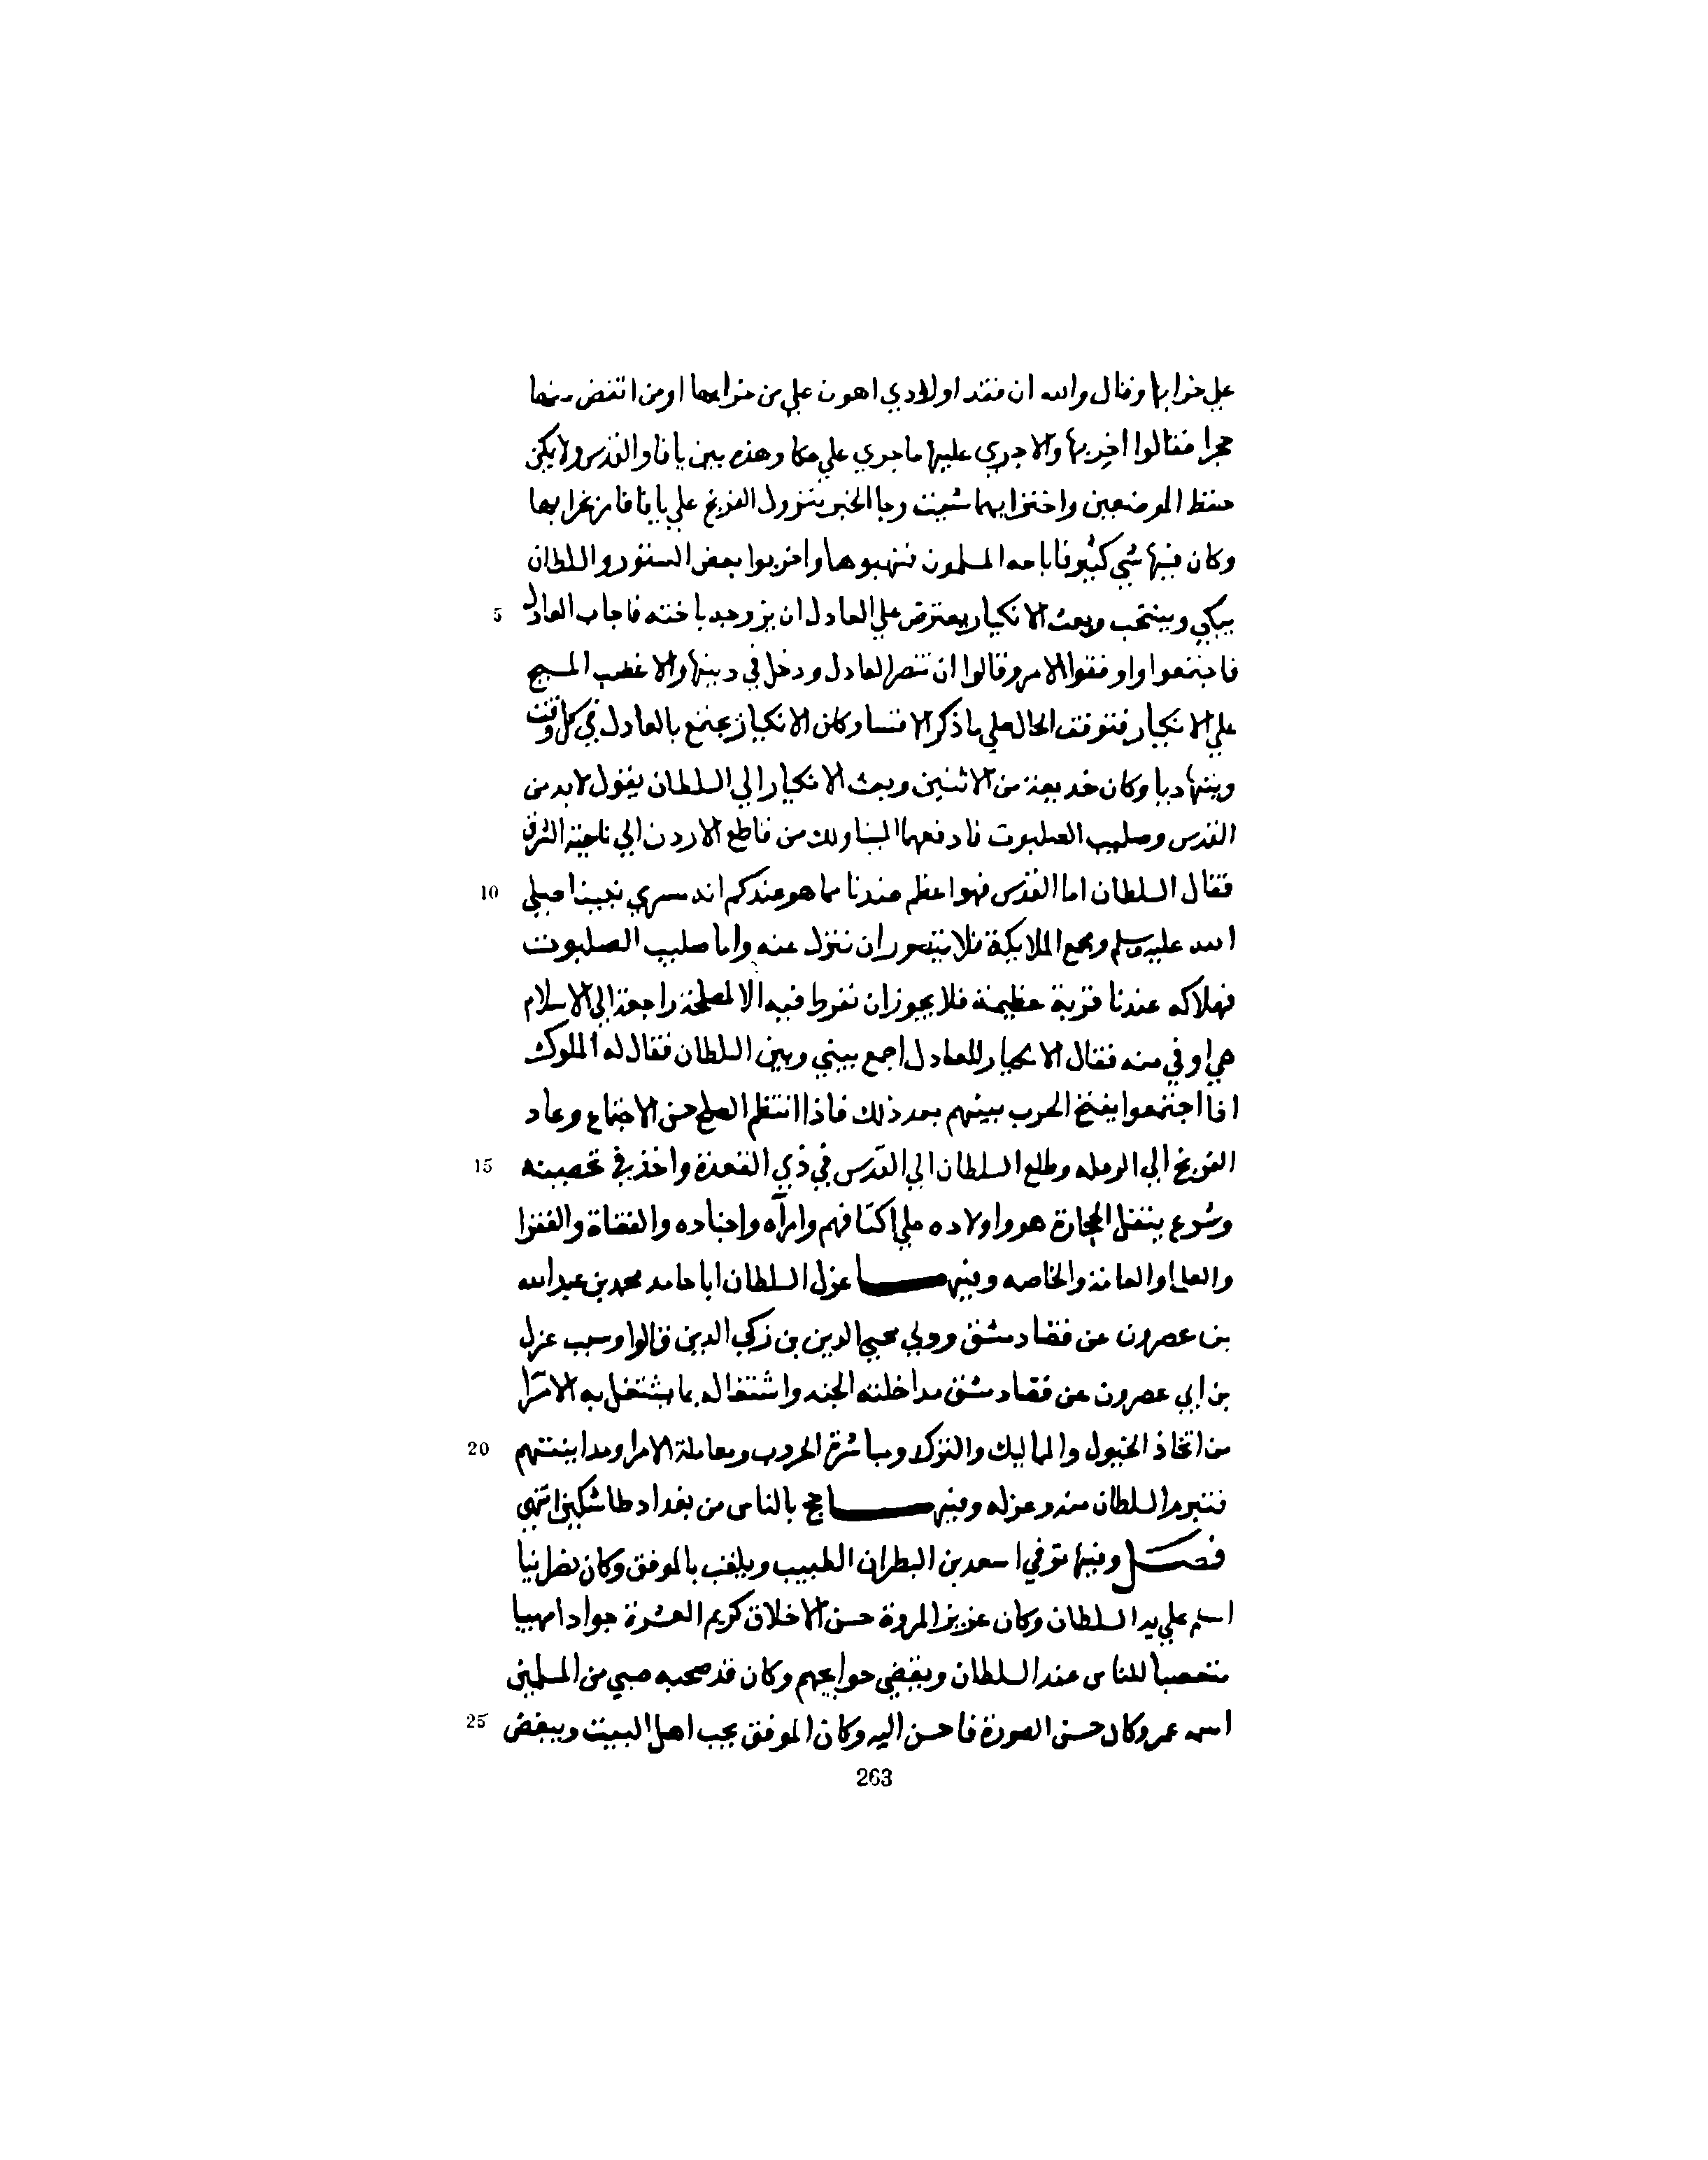 علي خرابها وقال والله ان فقد اولادي اهون علي من خرابها او من انقض منها
حجرا فقالوا اخربها والا جري عليها ما جري علي عكا وهذه بين يافا والقدس ولا يمكن
حفظ الموضعين واختر ايهما شيت وجا الخبر بنزول الفرنج علي يافا فامر بخرابها
وكان فيها شي كثير فاباحه المسلمون فنهبوها واخربوا بعض السور والسلطان
5 يبكي وينتحب وبعث الانكتار يعترض علي العادل ان يزوجه باخته فاجاب العادل
فاجتمعوا واوفقوا الامر وقالوا ان تنصر العادل ودخل في دينها والا غضب المسيح
علي الانكتار فتوقف الحال علي ما ذكر الاقسا وكان الانكتار يجتمع بالعادل في كل وقت
ويتهاديا وكان خديعة من الاثنين وبعث الانكتار الي السلطان يقول لا بد من
القدس وصليب الصلبوت فادفعهما الينا ولك من قاطع الاردن الي ناحية الشرق
10 فقال السلطان اما القدس فهو اعظم عندنا مما هو عندكم انه مسري نبينا صلي
الله عليه وسلم ومجمع الملايكة فلا يتصور ان ننزل عنه واما صليب الصلبوت
فهلاكه عندنا قربة عظيمة فلا يجوز ان نفرط فيه الا لمصلحة راجعة الي الاسلام
هي اوفي منه فقال الانكتار للعادل اجمع بيني وبين السلطان فقال له الملوك
اذا اجتمعوا يفتح الحرب بينهم بعد ذلك فاذا انتظم الصلح حسن الاجتماع وعاد
15 الفرنج الي الرمله وطلع السلطان الي القدس في ذي القعدة واخذ في تحصينه
وشرع ينقل الحجارة هو واولاده علي اكتافهم وامرآه واجناده والقضاة والفقرا
والعلما والعامة والخاصه وفيهـــا عزل السلطان ابا حامد محمد بن عبد الله
بن عصرون عن قضا دمشق وولي محيي الدين بن زكي الدين قالوا وسبب عزل
بن ابي عصرون عن قضا دمشق مداخلته الجند واشتغاله بما يشتغل به الامرآ
20 من اتخاذ الخيول والمماليك والترك ومباشرة الحروب ومعاملة الامرا ومداينتهم
فتبرم السلطان منه وعزله وفيهـــا حج بالناس من بغداد طاشتكين انتهي
فصـــل وفيها توفي اسعد بن البطران الطبيب ويلقب بالموفق وكان نصرانيا
اسلم علي يد السلطان وكان عزيز المروة حسن الاخلاق كريم العشرة جوادا مهيبا
متعصبا للناس عند السلطان ويقضي حوايجهم وكان قد صحبه صبي من المسلمين
25 اسمه عمر وكان حسن الصورة فاحسن اليه وكان الموفق يحب اهل البيت ويبغض
263